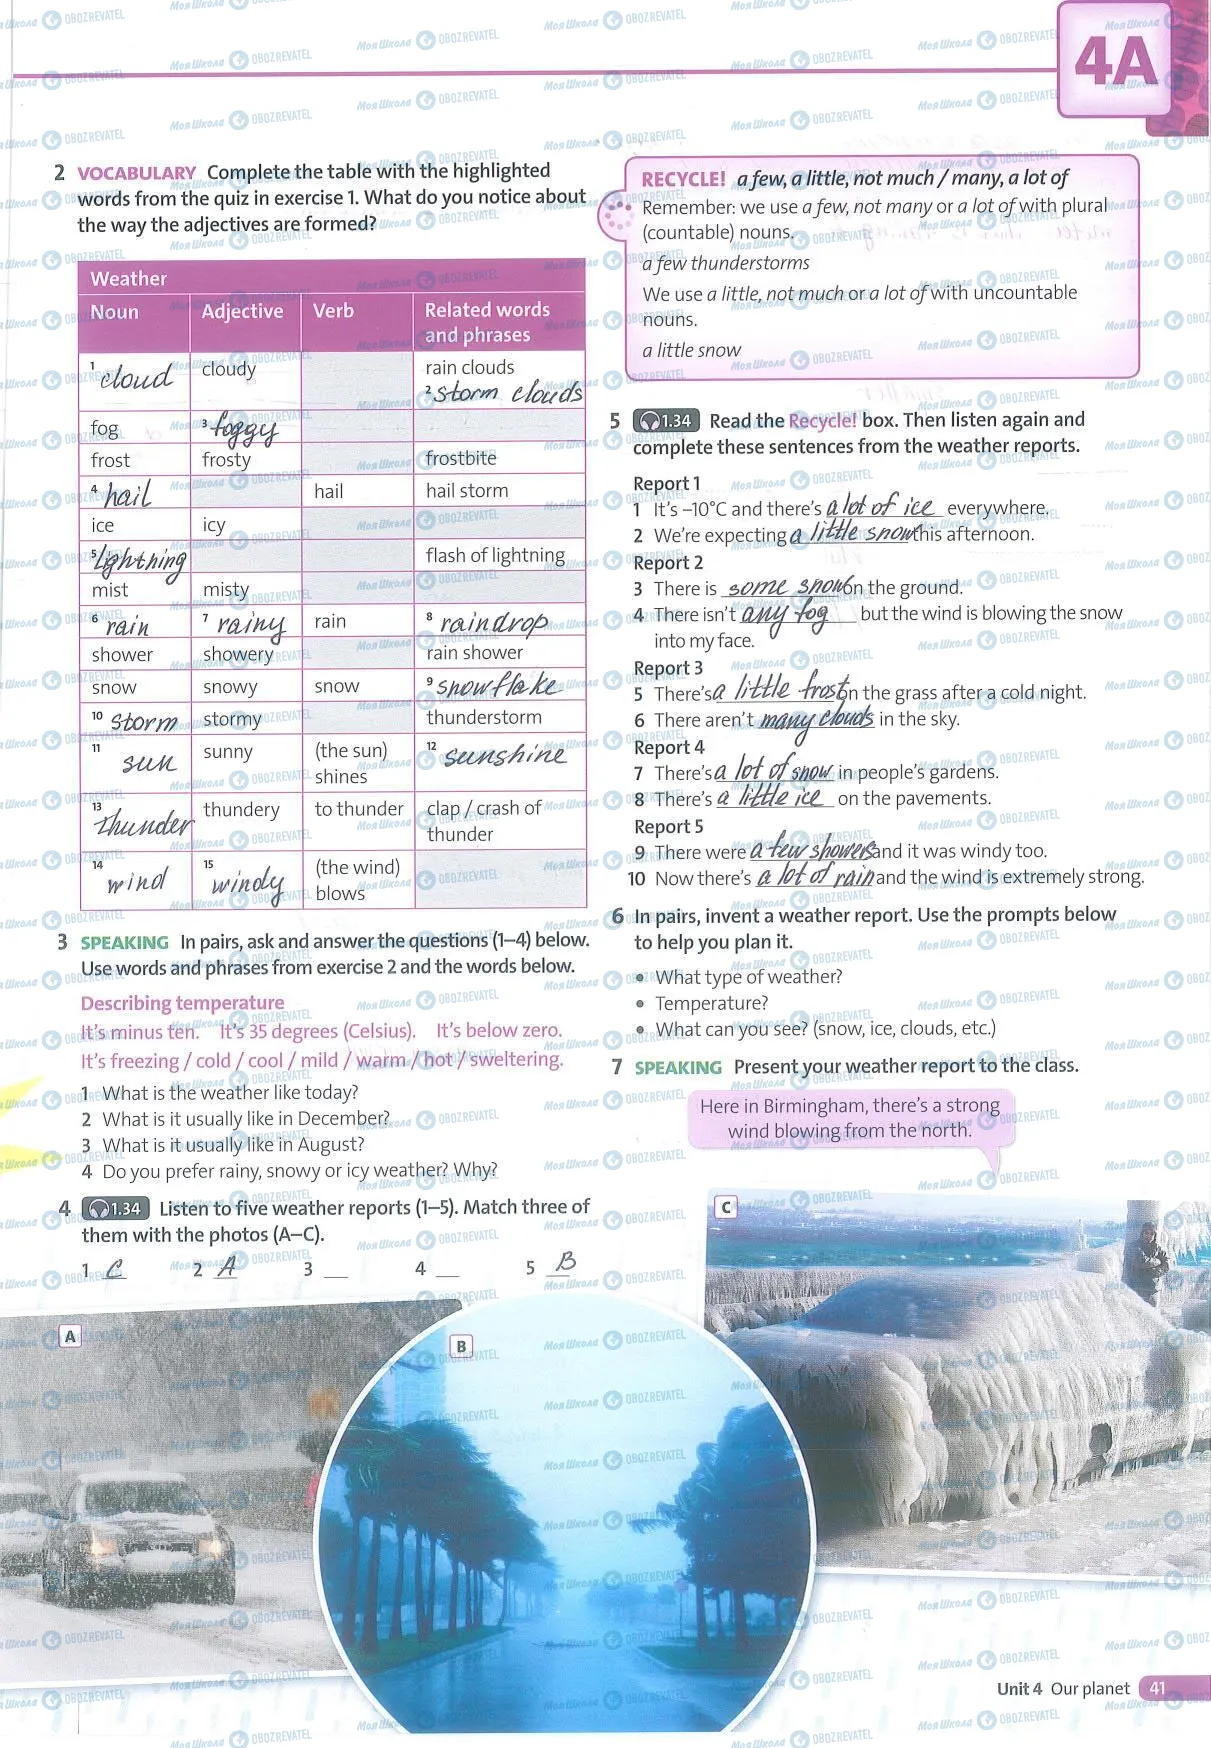 4A
2 VOCABULARY Complete the table with the highlighted
words from the quiz in exercise 1. What do you notice about
the way the adjectives are formed?
Weather
Noun Adjective Verb Related words
and phrases
1 cloud cloudy rain clouds
2 storm clouds
fog 3 foggy
frost frosty frostbite
4 hail hail hail storm
ice icy
5 lightning flash of lightning
mist misty
6 rain 7 rainy rain 8 raindrop
shower showery rain shower
snow snowy snow 9 snowflake
10 storm stormy thunderstorm
11 sun sunny (the sun) 12 sunshine
shines
13 thunder thundery to thunder clap / crash of
thunder
14 wind 15 windy (the wind)
blows
3 SPEAKING In pairs, ask and answer the questions (1–4) below.
Use words and phrases from exercise 2 and the words below.
Describing temperature
It's minus ten. It's 35 degrees (Celsius). It's below zero.
It's freezing / cold / cool / mild / warm / hot / sweltering.
1 What is the weather like today?
2 What is it usually like in December?
3 What is it usually like in August?
4 Do you prefer rainy, snowy or icy weather? Why?
4 1.34 Listen to five weather reports (1–5). Match three of
them with the photos (A–C).
1 C 2 A 3 __ 4 __ 5 B
A
B
RECYCLE! a few, a little, not much / many, a lot of
Remember: we use a few, not many or a lot of with plural
(countable) nouns.
a few thunderstorms
We use a little, not much or a lot of with uncountable
nouns.
a little snow
5 1.34 Read the Recycle! box. Then listen again and
complete these sentences from the weather reports.
Report 1
1 It's –10°C and there's a lot of ice everywhere.
2 We're expecting a little snow this afternoon.
Report 2
3 There is some snow on the ground.
4 There isn't any fog but the wind is blowing the snow
into my face.
Report 3
5 There's a little frost on the grass after a cold night.
6 There aren't many clouds in the sky.
Report 4
7 There's a lot of snow in people's gardens.
8 There's a little ice on the pavements.
Report 5
9 There were a few showers and it was windy too.
10 Now there's a lot of rain and the wind is extremely strong.
6 In pairs, invent a weather report. Use the prompts below
to help you plan it.
• What type of weather?
• Temperature?
• What can you see? (snow, ice, clouds, etc.)
7 SPEAKING Present your weather report to the class.
Here in Birmingham, there's a strong
wind blowing from the north.
C
Unit 4 Our planet 41
МояШкола OBOZREVATEL